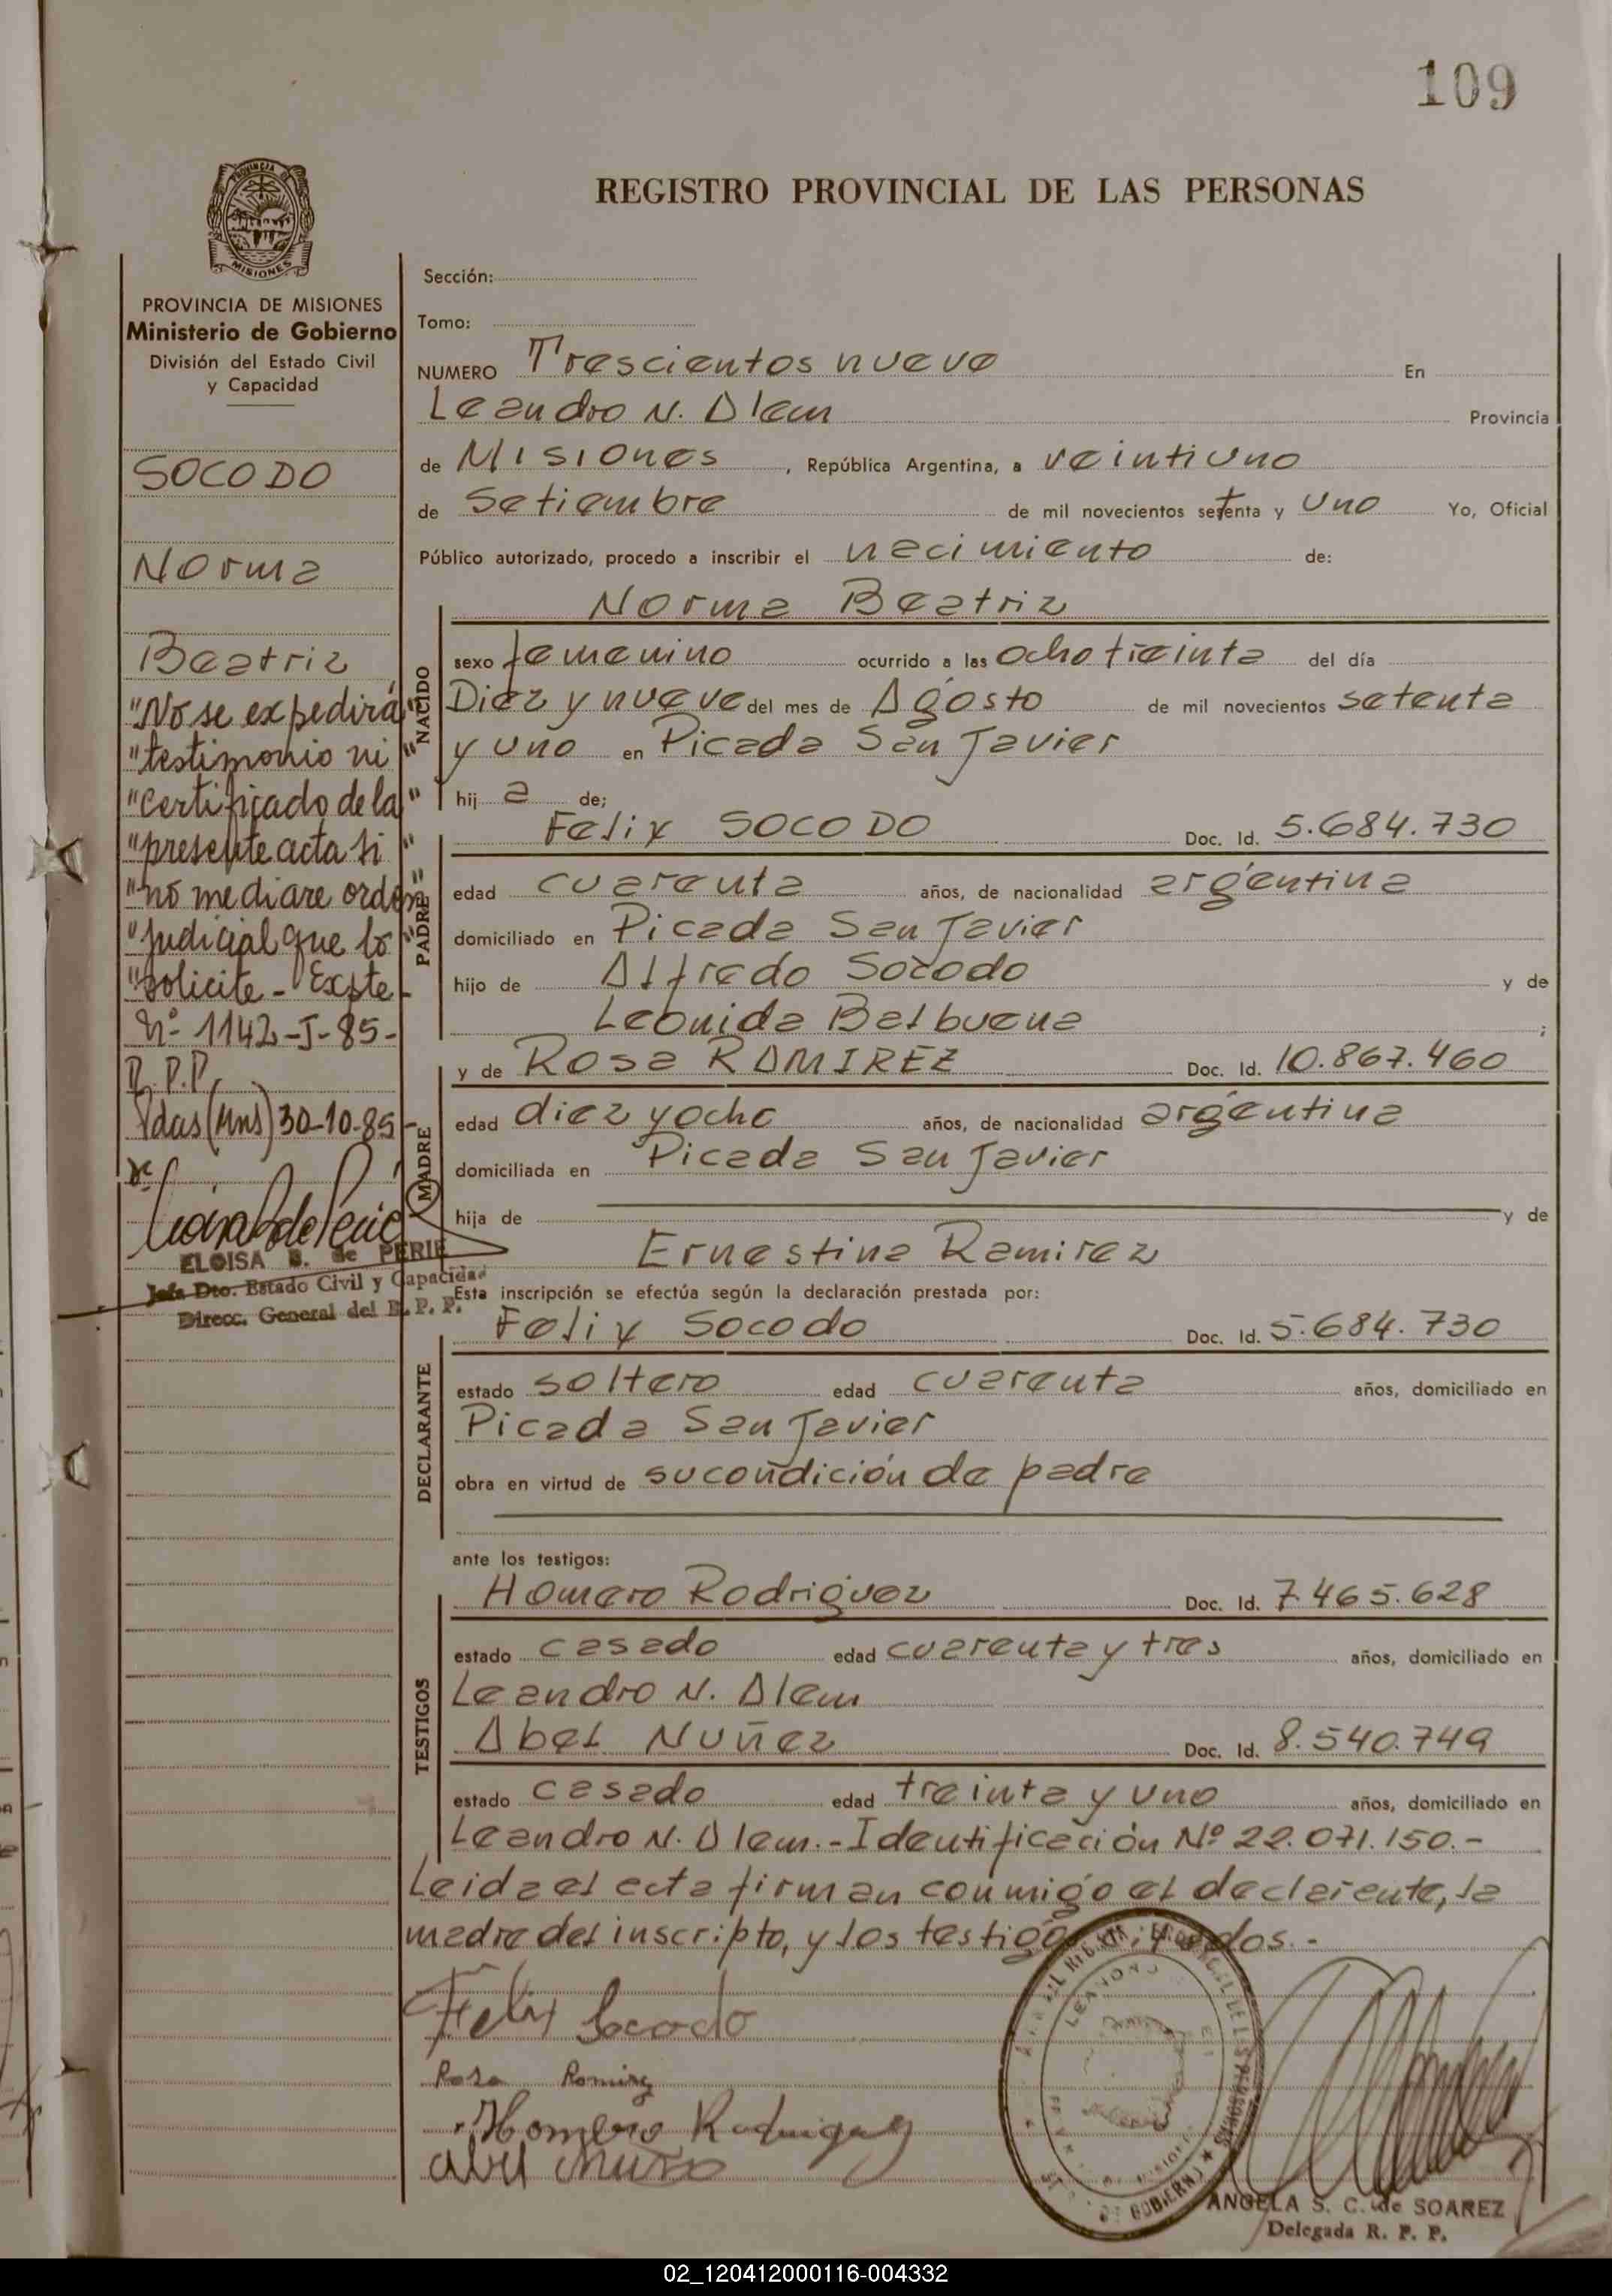 109
REGISTRO PROVINCIAL DE LAS PERSONAS
PROVINCIA DE
MISIONES
PROVINCIA DE MISIONES
Ministerio de Gobierno
División del Estado Civil
y Capacidad
SOCODO
Norma
Beatriz
"No se expedirá"
"testimonio ni "
"certificado de la"
"presente acta si "
"no mediare orden"
"judicial que lo "
"solicite - Expte -
Nº 1142-J-85-
R.P.P.
Pdas (Mns) 30-10-85-
ELOISA B. de PERIE
Jefa Dto. Estado Civil y Capacidad
Direcc. General del R. P. P.
Sección:
Tomo:
NUMERO Trescientos nueve En
Leandro N. Alem Provincia
de Misiones , República Argentina, a veintiuno
de Setiembre de mil novecientos setenta y uno Yo, Oficial
Público autorizado, procedo a inscribir el nacimiento de:
NACIDO
Norma Beatriz
sexo femenino ocurrido a las ocho treinta del día
Diez y nueve del mes de Agosto de mil novecientos setenta
y uno en Picada San Javier
hij a de;
PADRE
Felix SOCODO Doc. Id. 5.684.730
edad cuarenta años, de nacionalidad argentina
domiciliado en Picada San Javier
hijo de Alfredo Socodo y de
Leonida Balbuena ;
MADRE
y de Rosa RAMIREZ Doc. Id. 10.867.460
edad diez y ocho años, de nacionalidad argentina
domiciliada en Picada San Javier
hija de y de
Ernestina Ramirez
Esta inscripción se efectúa según la declaración prestada por:
DECLARANTE
Felix Socodo Doc. Id. 5.684.730
estado soltero edad cuarenta años, domiciliado en
Picada San Javier
obra en virtud de su condición de padre
ante los testigos:
TESTIGOS
Homero Rodriguez Doc. Id. 7.465.628
estado casado edad cuarenta y tres años, domiciliado en
Leandro N. Alem
Abel Nuñez Doc. Id. 8.540.749
estado casado edad treinta y uno años, domiciliado en
Leandro N. Alem.- Identificación Nº 22.071.150.-
Leida el acta firman conmigo el declarante, la
madre del inscripto, y los testigos citados.-
Felix Socodo
Rosa Ramirez
Homero Rodriguez
Abel Nuñez
ANGELA S. C. de SOAREZ
Delegada R. P. P.
02_120412000116-004332